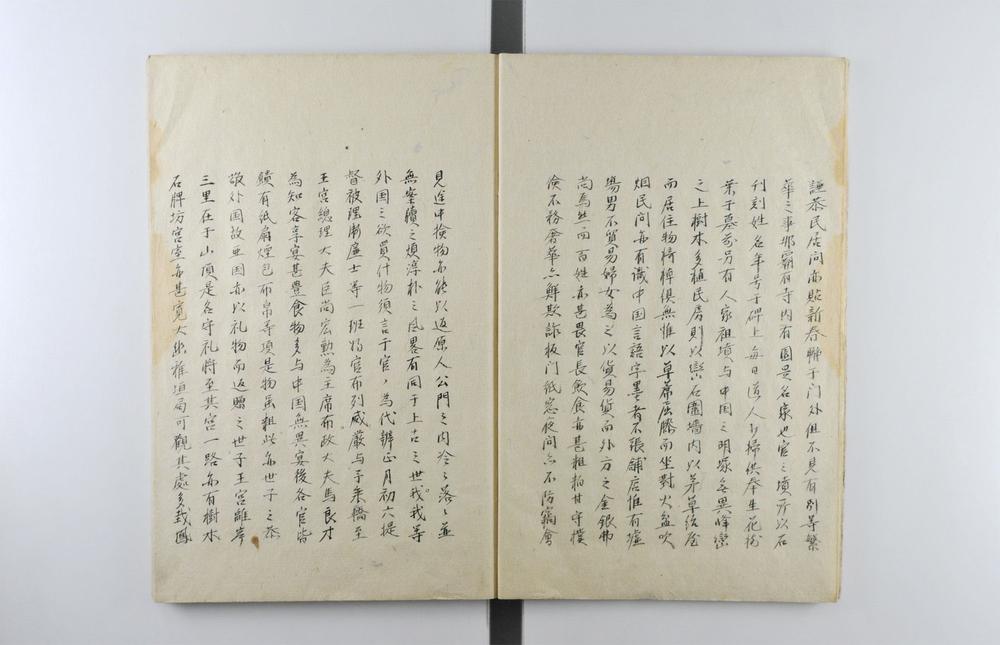 謙恭民居间亦貼新春聯于门外但不見有別等繁
華之事那霸有寺内有園是名家也官之墳亓以石
刊刻姓名年号于碑上每日道人打掃供奉生花樹
葉于墓前另有人家祖墳与中国之明塚無異峰巒
之上樹木多植民房則以巒石圍墻内以茅草結屋
而居住物椅棹俱無惟以草席屈膝而坐對火盆吹
烟民间亦有識中国言語字墨者不張舖店惟有墟
場男不貿易婦女為之以貨易貨而外方之金銀弗
尚焉然而百姓亦甚畏官長飲食亦甚粗粕甘守樸
儉不務奢華亦鮮欺詐板门纸窓夜间亦不防竊會
見途中撿物亦能以返原人公門之内冷々落々並
無案牘之煩淳朴之風畧有同于上古之世我我等
外国之欲買什物須言于官々為代辦正月初六提
督被理衛廉士等一班將官布列威嚴与予乘轎至
王宫總理大夫臣尚宏勲為主席布政大夫馬良才
為知客享宴甚豊食物多与中国無異宴後各官皆
饋有紙扇煙包布帛等項是物虽粗此亦世子之恭
敬外国故亜国亦以礼物而返贈之世子王宫離岸
三里在于山頂是名守礼將至其宫一路亦有樹木
石牌坊宫室亦甚寛大幽雅垣局可觀其處多我鳳